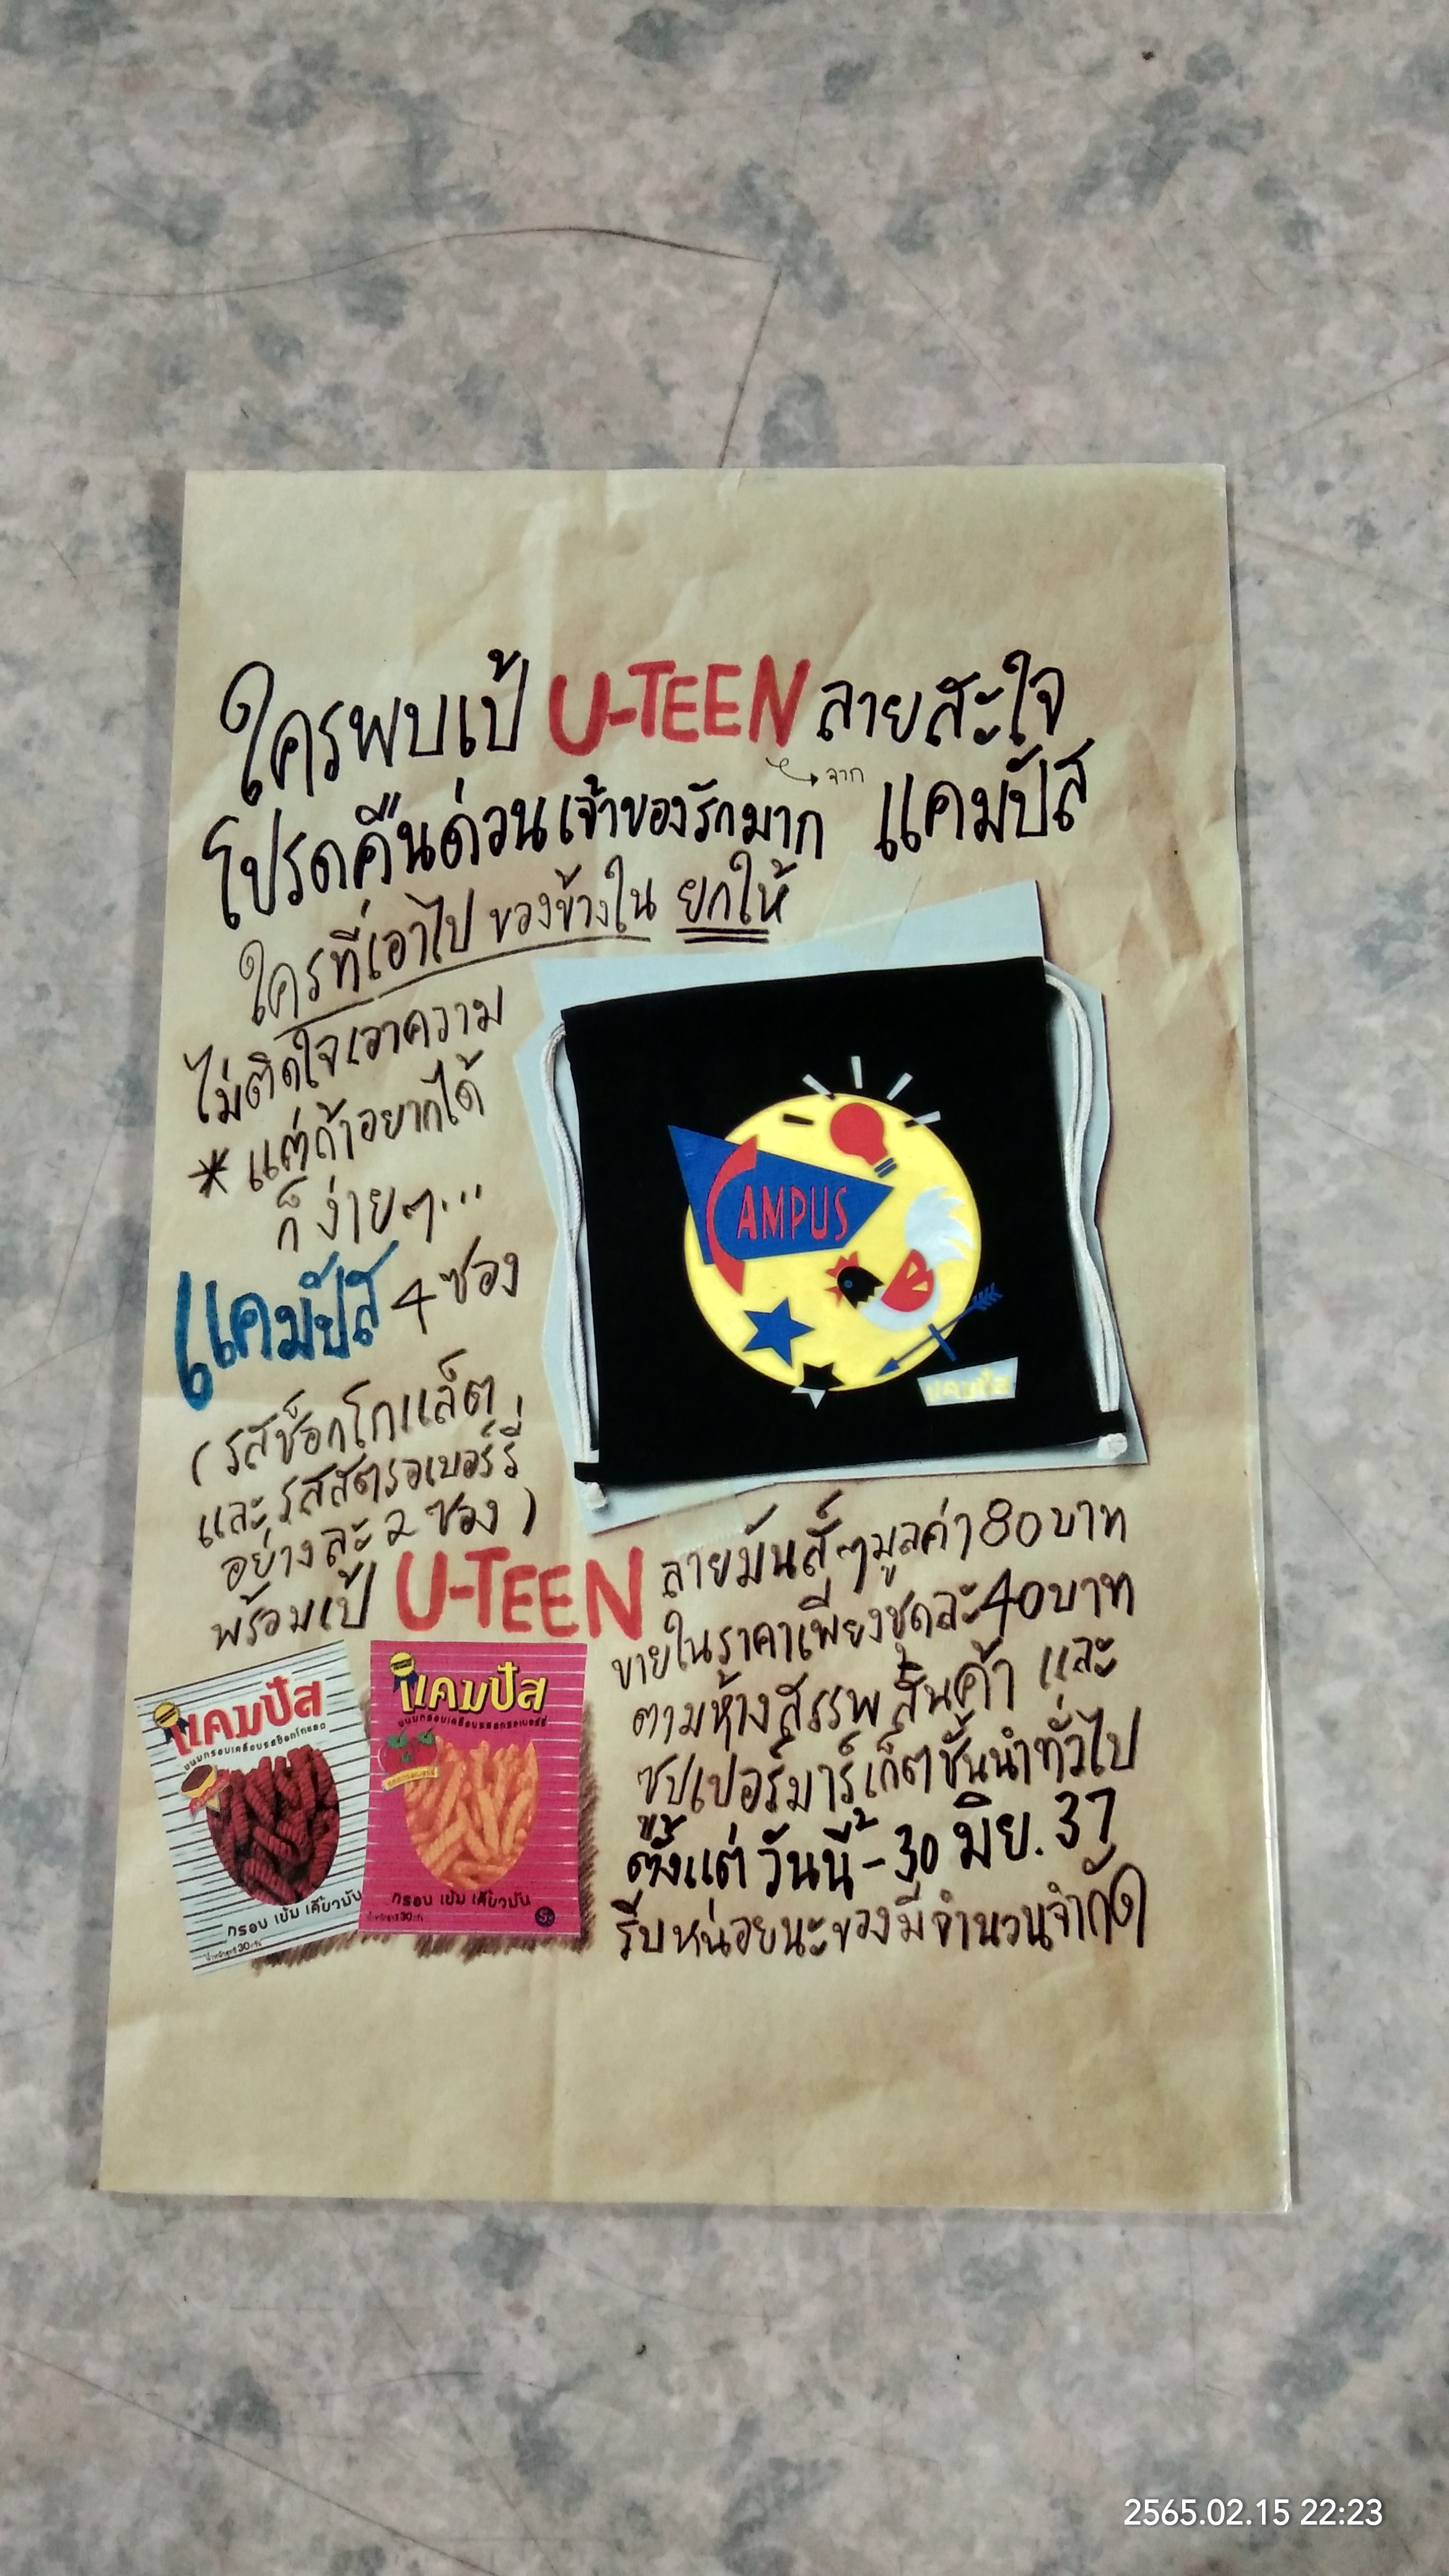 ใครพบเป้ U-TEEN ลายสะใจ
จาก แคมปัส
โปรดคืนด่วนเจ้าของรักมาก
ใครที่เอาไป ของข้างใน ยกให้
ไม่ติดใจเอาความ
* แต่ถ้าอยากได้
ก็ง่ายๆ...
แคมปัส 4 ซอง
(รสช็อกโกแล็ต
และรสสตรอเบอร์รี่
อย่างละ 2 ซอง)
พร้อมเป้ U-TEEN ลายมันส์ๆมูลค่า 80 บาท
ขายในราคาเพียงชุดละ 40 บาท
ตามห้างสรรพสินค้า และ
ซุปเปอร์มาร์เก็ตชั้นนำทั่วไป
ตั้งแต่ วันนี้ - 30 มิย. 37
รีบหน่อยนะของมีจำนวนจำกัด
CAMPUS
แคมปัส
แคมปัส
ขนมกรอบเคลือบรสช็อกโกแลต
กรอบ เข้ม เคี้ยวมัน
น้ำหนักสุทธิ 30 กรัม
แคมปัส
ขนมกรอบเคลือบรสสตรอเบอร์รี่
กรอบ เข้ม เคี้ยวมัน
น้ำหนักสุทธิ 30 กรัม
2565.02.15 22:23